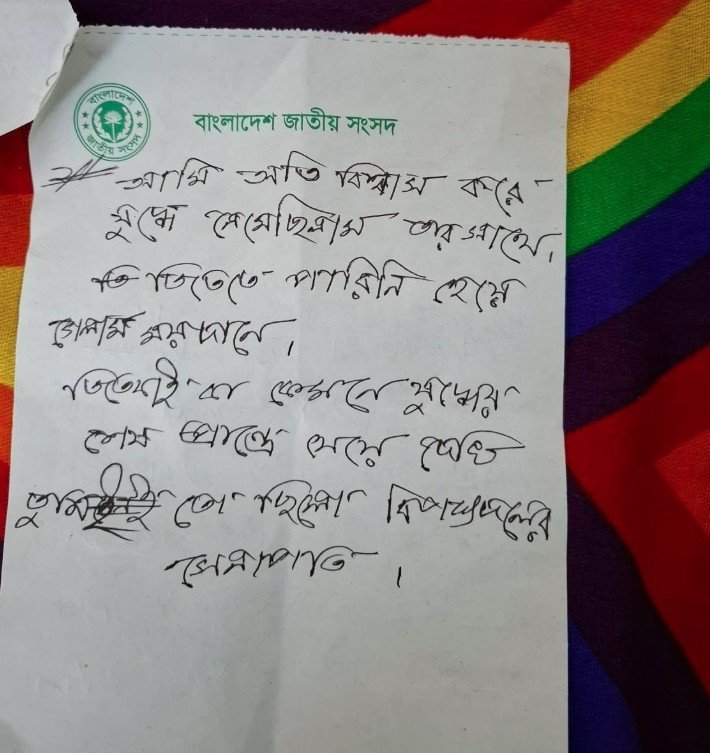 বাংলাদেশ
জাতীয় সংসদ
বাংলাদেশ জাতীয় সংসদ
আমি অতি বিশ্বাস করে
যুদ্ধে নেমেছিলাম তার সাথে।
জিততে পারিনি হেরে
গেলাম ময়দানে।
জিতেযাই বা কেমনে যুদ্ধের
শেষ প্রান্তে যেয়ে দেখি
তুমিই তো ছিলে বিপক্ষদলের
সেনাপতি।